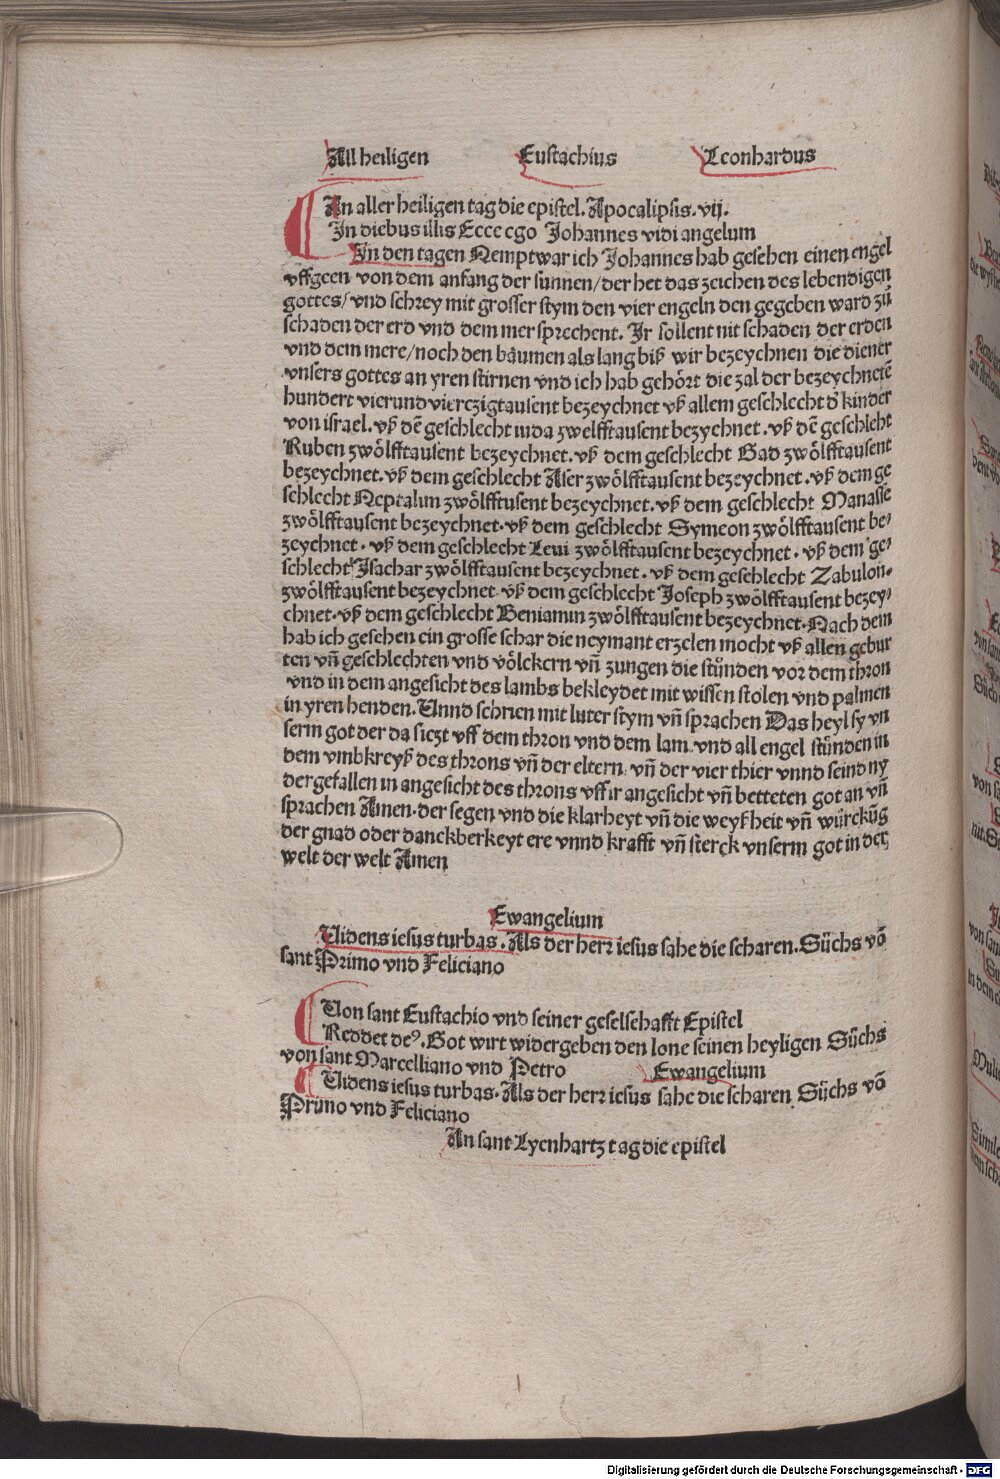 All heiligen Eustachius Leonhardus
An aller heiligen tag die epistel. Apocalipsis. vij.
In diebus illis Ecce ego Johannes vidi angelum
In den tagen Nempt war ich Johannes hab gesehen einen engel
vffgeen von dem anfang der sunnen/ der het das zeichen des lebendigen
gottes/ vnd schrey mit grosser stym den vier engeln den gegeben ward zů
schaden der erd vnd dem mer sprechent. Ir sollent nit schaden der erden
vnd dem mere/ noch den bäumen als lang biß wir bezeychnen die diener
vnsers gottes an yren stirnen vnd ich hab gehört die zal der bezeychnetē
hundert vierundvierczigtausent bezeychnet vß allem geschlecht d̕ kinder
von israel. vß dē geschlecht iuda zwelfftausent bezychnet. vß dē geschlecht
Ruben zwölfftausent bezeychnet. vß dem geschlecht Gad zwölfftausent
bezeychnet. vß dem geschlecht Aser zwölfftausent bezeychnet. vß dem ge
schlecht Neptalim zwölfftusent bezeychnet. vß dem geschlecht Manasse
zwölfftausent bezeychnet. vß dem geschlecht Symeon zwölfftausent be⸗
zeychnet. vß dem geschlecht Leui zwölfftausent bezeychnet. vß dem ge⸗
schlecht Isachar zwölfftausent bezeychnet. vß dem geschlecht Zabulon.
zwölfftausent bezeychnet vß dem geschlecht Joseph zwölfftausent bezey⸗
chnet. vß dem geschlecht Beniamin zwölfftausent bezeychnet. Nach dem
hab ich gesehen ein grosse schar die neymant erzelen mocht vß allen gebur
ten vn̄ geschlechten vnd völckern vn̄ zungen die stůnden vor dem thron
vnd in dem angesicht des lambs bekleydet mit wissen stolen vnd palmen
in yren henden. Vnnd schrien mit luter stym vn̄ sprachen Das heyl sy vn
serm got der da siczt vff dem thron vnd dem lam. vnd all engel stůnden in
dem vmbkreyß des throns vn̄ der eltern. vn̄ der vier thier vnnd seind ny
der gefallen in angesicht des throns vff ir angesicht vn̄ betteten got an vn̄
sprachen Amen. der segen vnd die klarheyt vn̄ die weyßheit vn̄ würckūg
der gnad oder danckberkeyt ere vnnd krafft vn̄ sterck vnserm got in der
welt der welt Amen
Ewangelium
Videns iesus turbas. Als der herr iesus sahe die scharen. Sůchs vō
sant Primo vnd Feliciano
Von sant Eustachio vnd seiner geselschafft Epistel
Reddet deꝰ. Got wirt widergeben den lone seinen heyligen Sůchs
von sant Marcelliano vnd Petro Ewangelium
Videns iesus turbas. Als der herr iesus sahe die scharen. Sůchs vō
Primo vnd Feliciano
An sant Lyenhartz tag die epistel
Digitalisierung gefördert durch die Deutsche Forschungsgemeinschaft - DFG